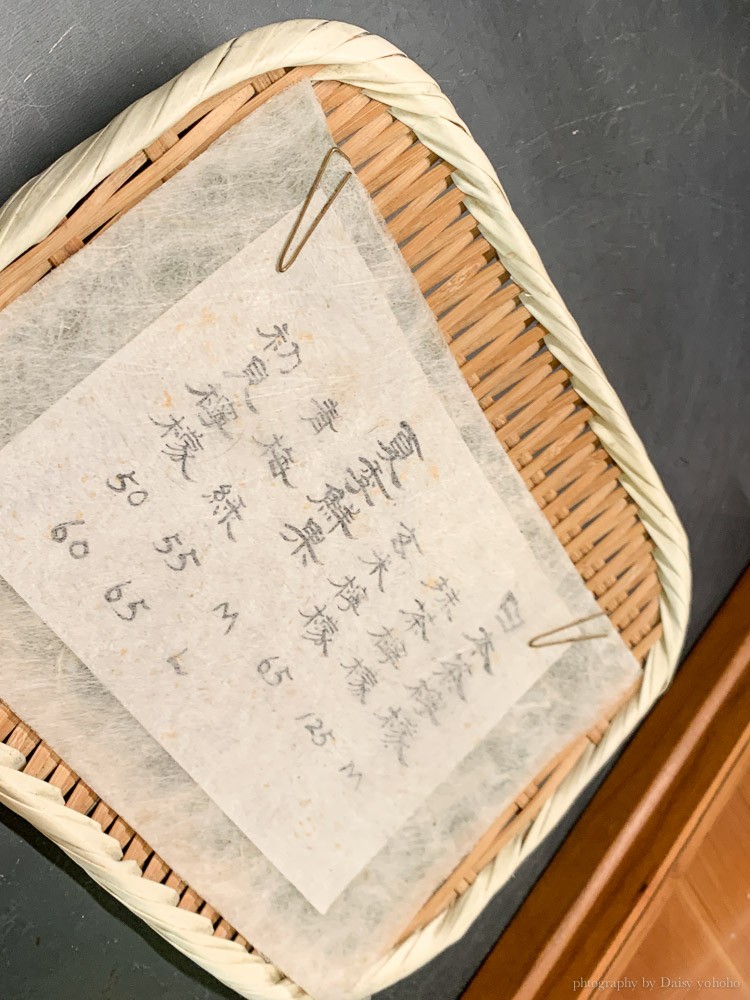 日本茶檸檬 M
抹茶檸檬
玄米檸檬 65
夏季鮮果 M L
青梅綠 55 65
初見檸檬 50 60
phtography by Daisy yohoho